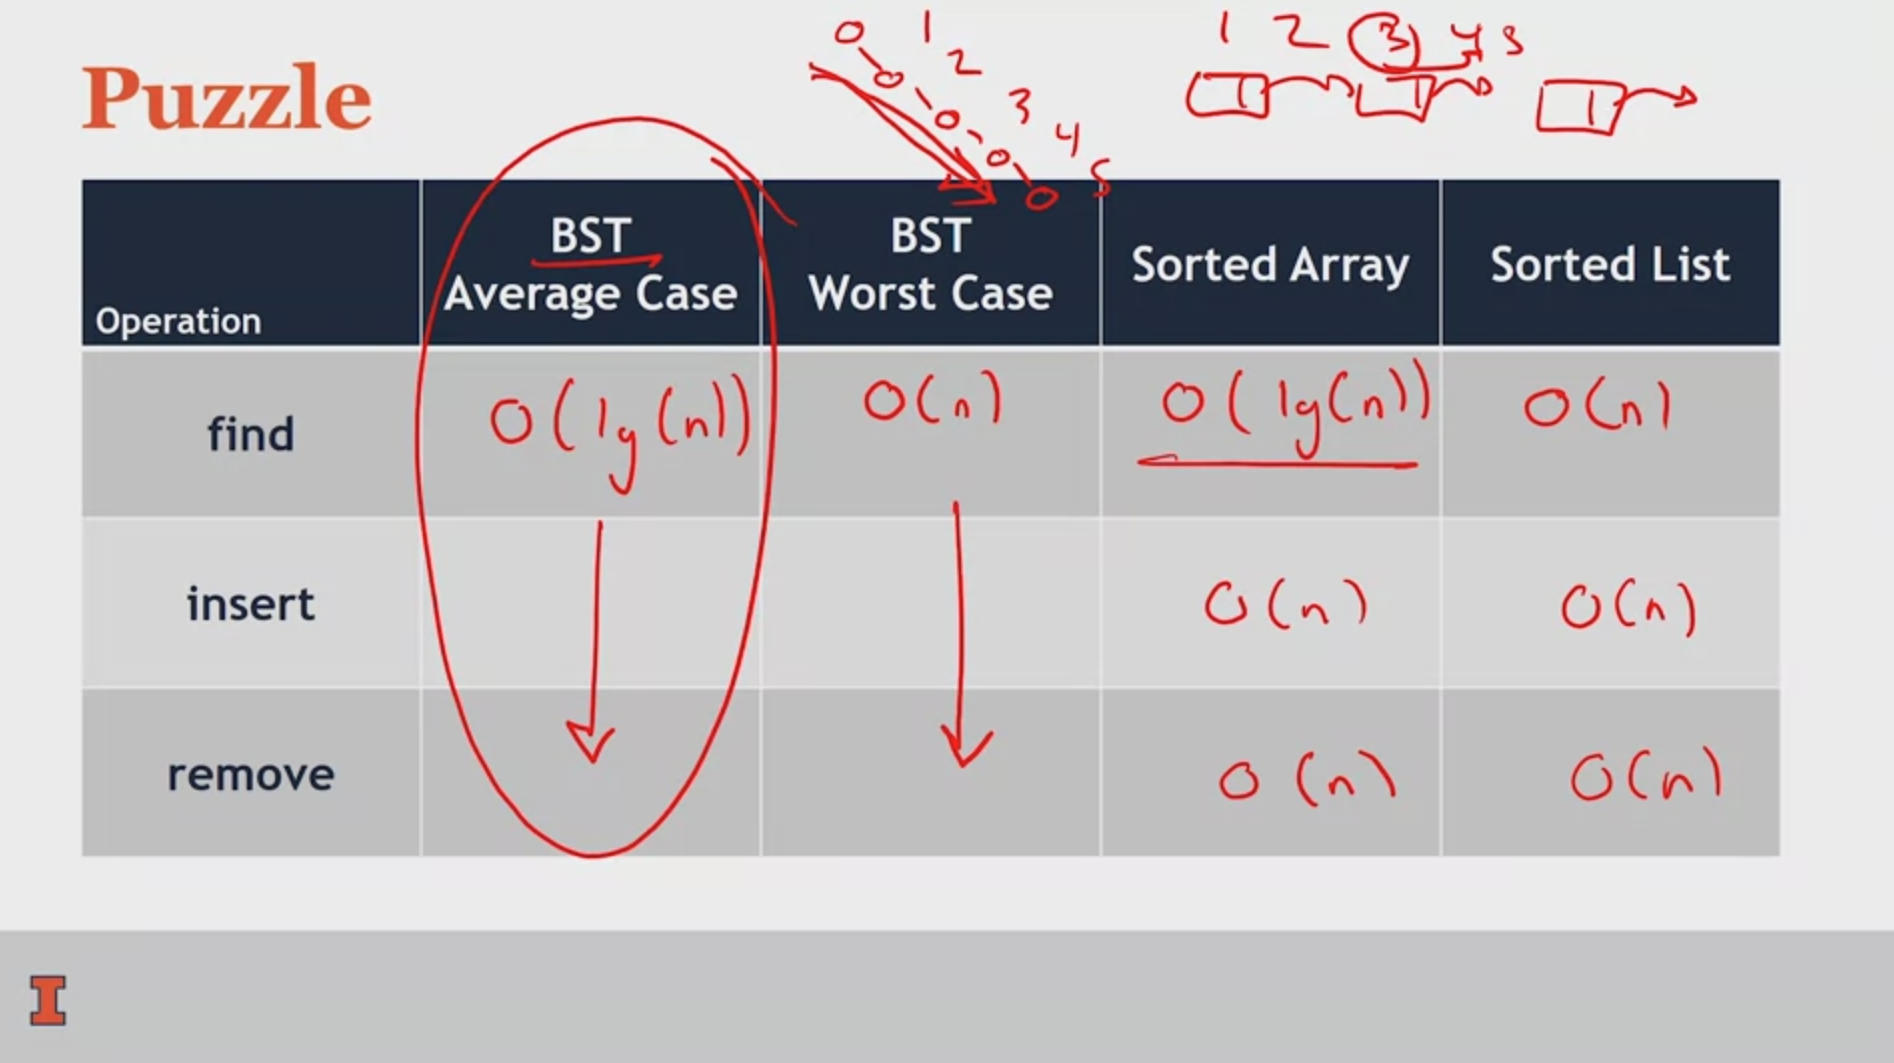 1 2 3 4 5
1
2
3
4
5
Puzzle
Operation
BST
Average Case
BST
Worst Case
Sorted Array
Sorted List
find O(lg(n)) O(n) O(lg(n)) O(n)
insert O(n) O(n)
remove O(n) O(n)
I